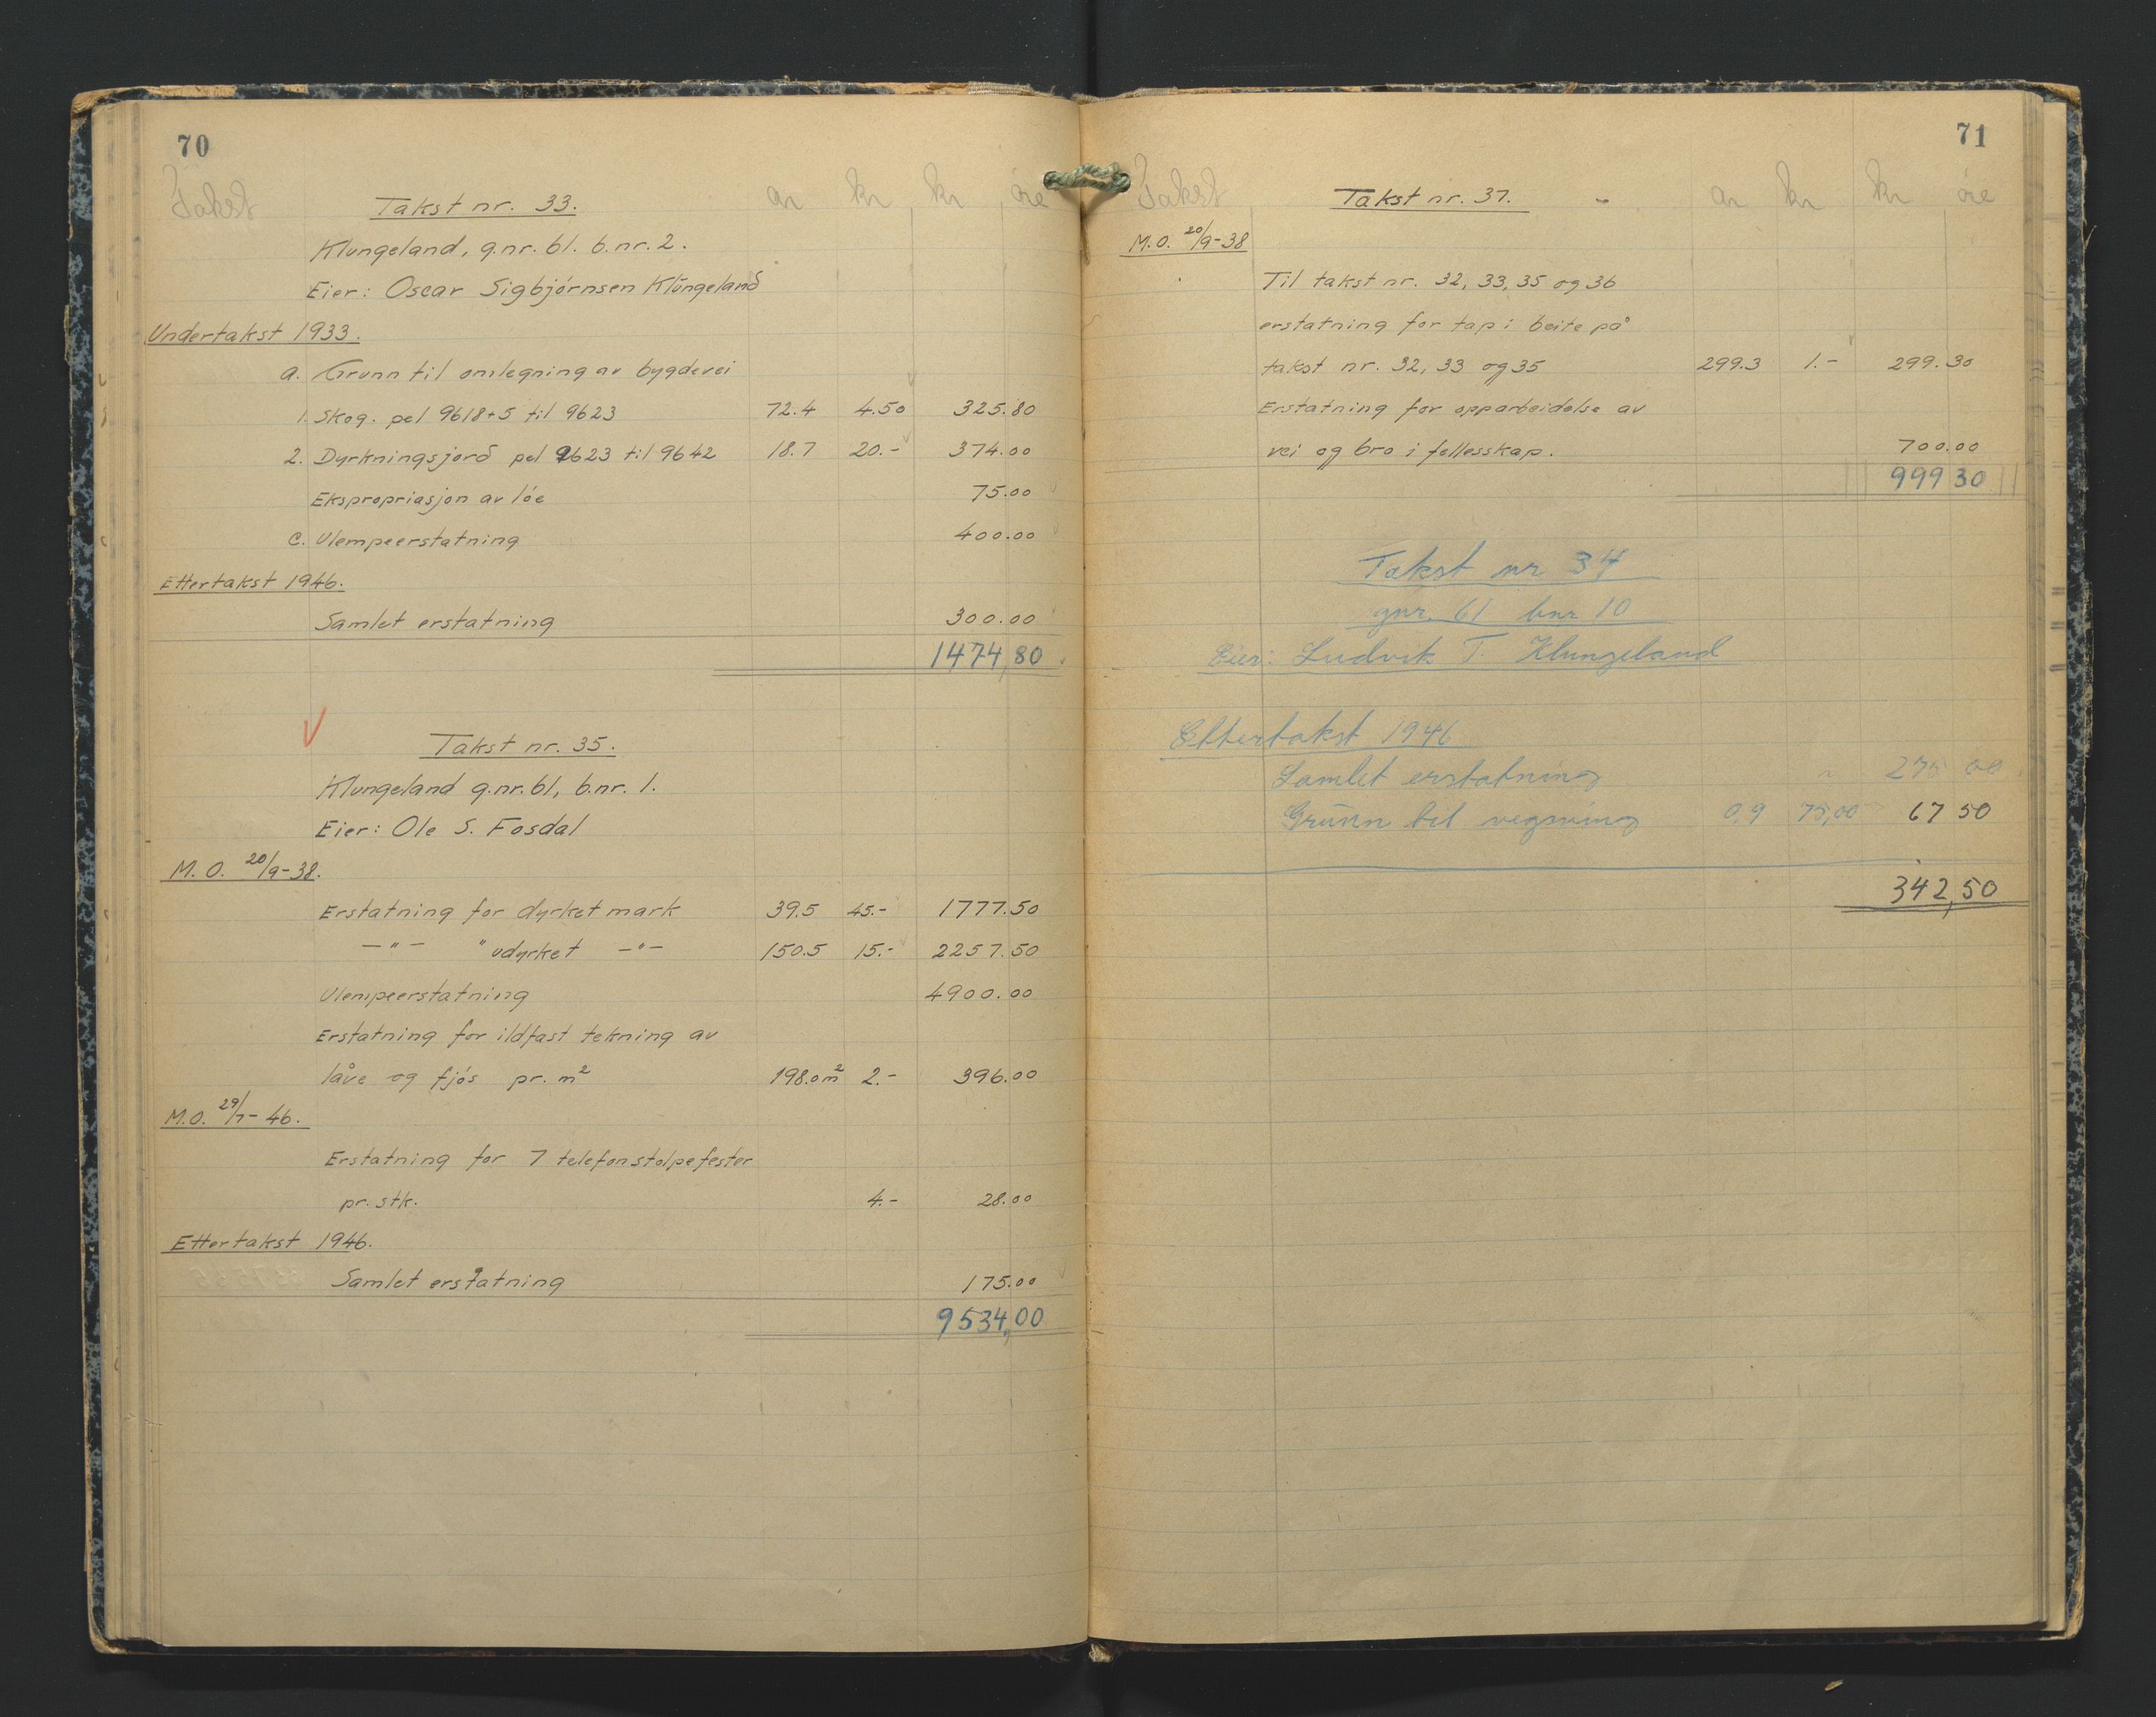 70
Takst ar kr kr øre
Takst nr. 33.
Klungeland, g.nr. 61. b.nr. 2.
Eier: Oscar Sigbjørnsen Klungeland
Undertakst 1933.
a. Grunn til omlegning av bygdevei
1. Skog. pel 9618+5 til 9623 72.4 4.50 325.80
2. Dyrkningsjord pel 9623 til 9642 18.7 20.- 374.00
Ekspropriasjon av løe 75.00
C. Ulempeerstatning 400.00
Ettertakst 1946.
Samlet erstatning 300.00
1474,80
Takst nr. 35.
Klungeland g.nr. 61, b.nr. 1.
Eier: Ole S. Fosdal
M.O. 20/9-38.
Erstatning for dyrket mark 39.5 45.- 1777.50
-"- " udyrket -"- 150.5 15.- 2257.50
Ulempeerstatning 4900.00
Erstatning for ildfast tekning av
låve og fjøs pr. m² 198.0m² 2.- 396.00
M.O. 29/7-46.
Erstatning for 7 telefonstolpefester
pr. stk. 4.- 28.00
Ettertakst 1946.
Samlet erstatning 175.00
9534,00
71
Takst ar kr kr øre
Takst nr. 37.
M.O. 20/9-38
Til takst nr. 32, 33, 35 og 36
erstatning for tap i beite på
takst nr. 32, 33 og 35 299.3 1.- 299.30
Erstatning for opparbeidelse av
vei og bro i fellesskap. 700.00
999 30
Takst nr 34
gnr. 61 bnr 10
Eier: Ludvik T. Klungeland
Ettertakst 1946
Samlet erstatning 275 00
Grunn til vegning 0,9 75,00 67 50
342,50